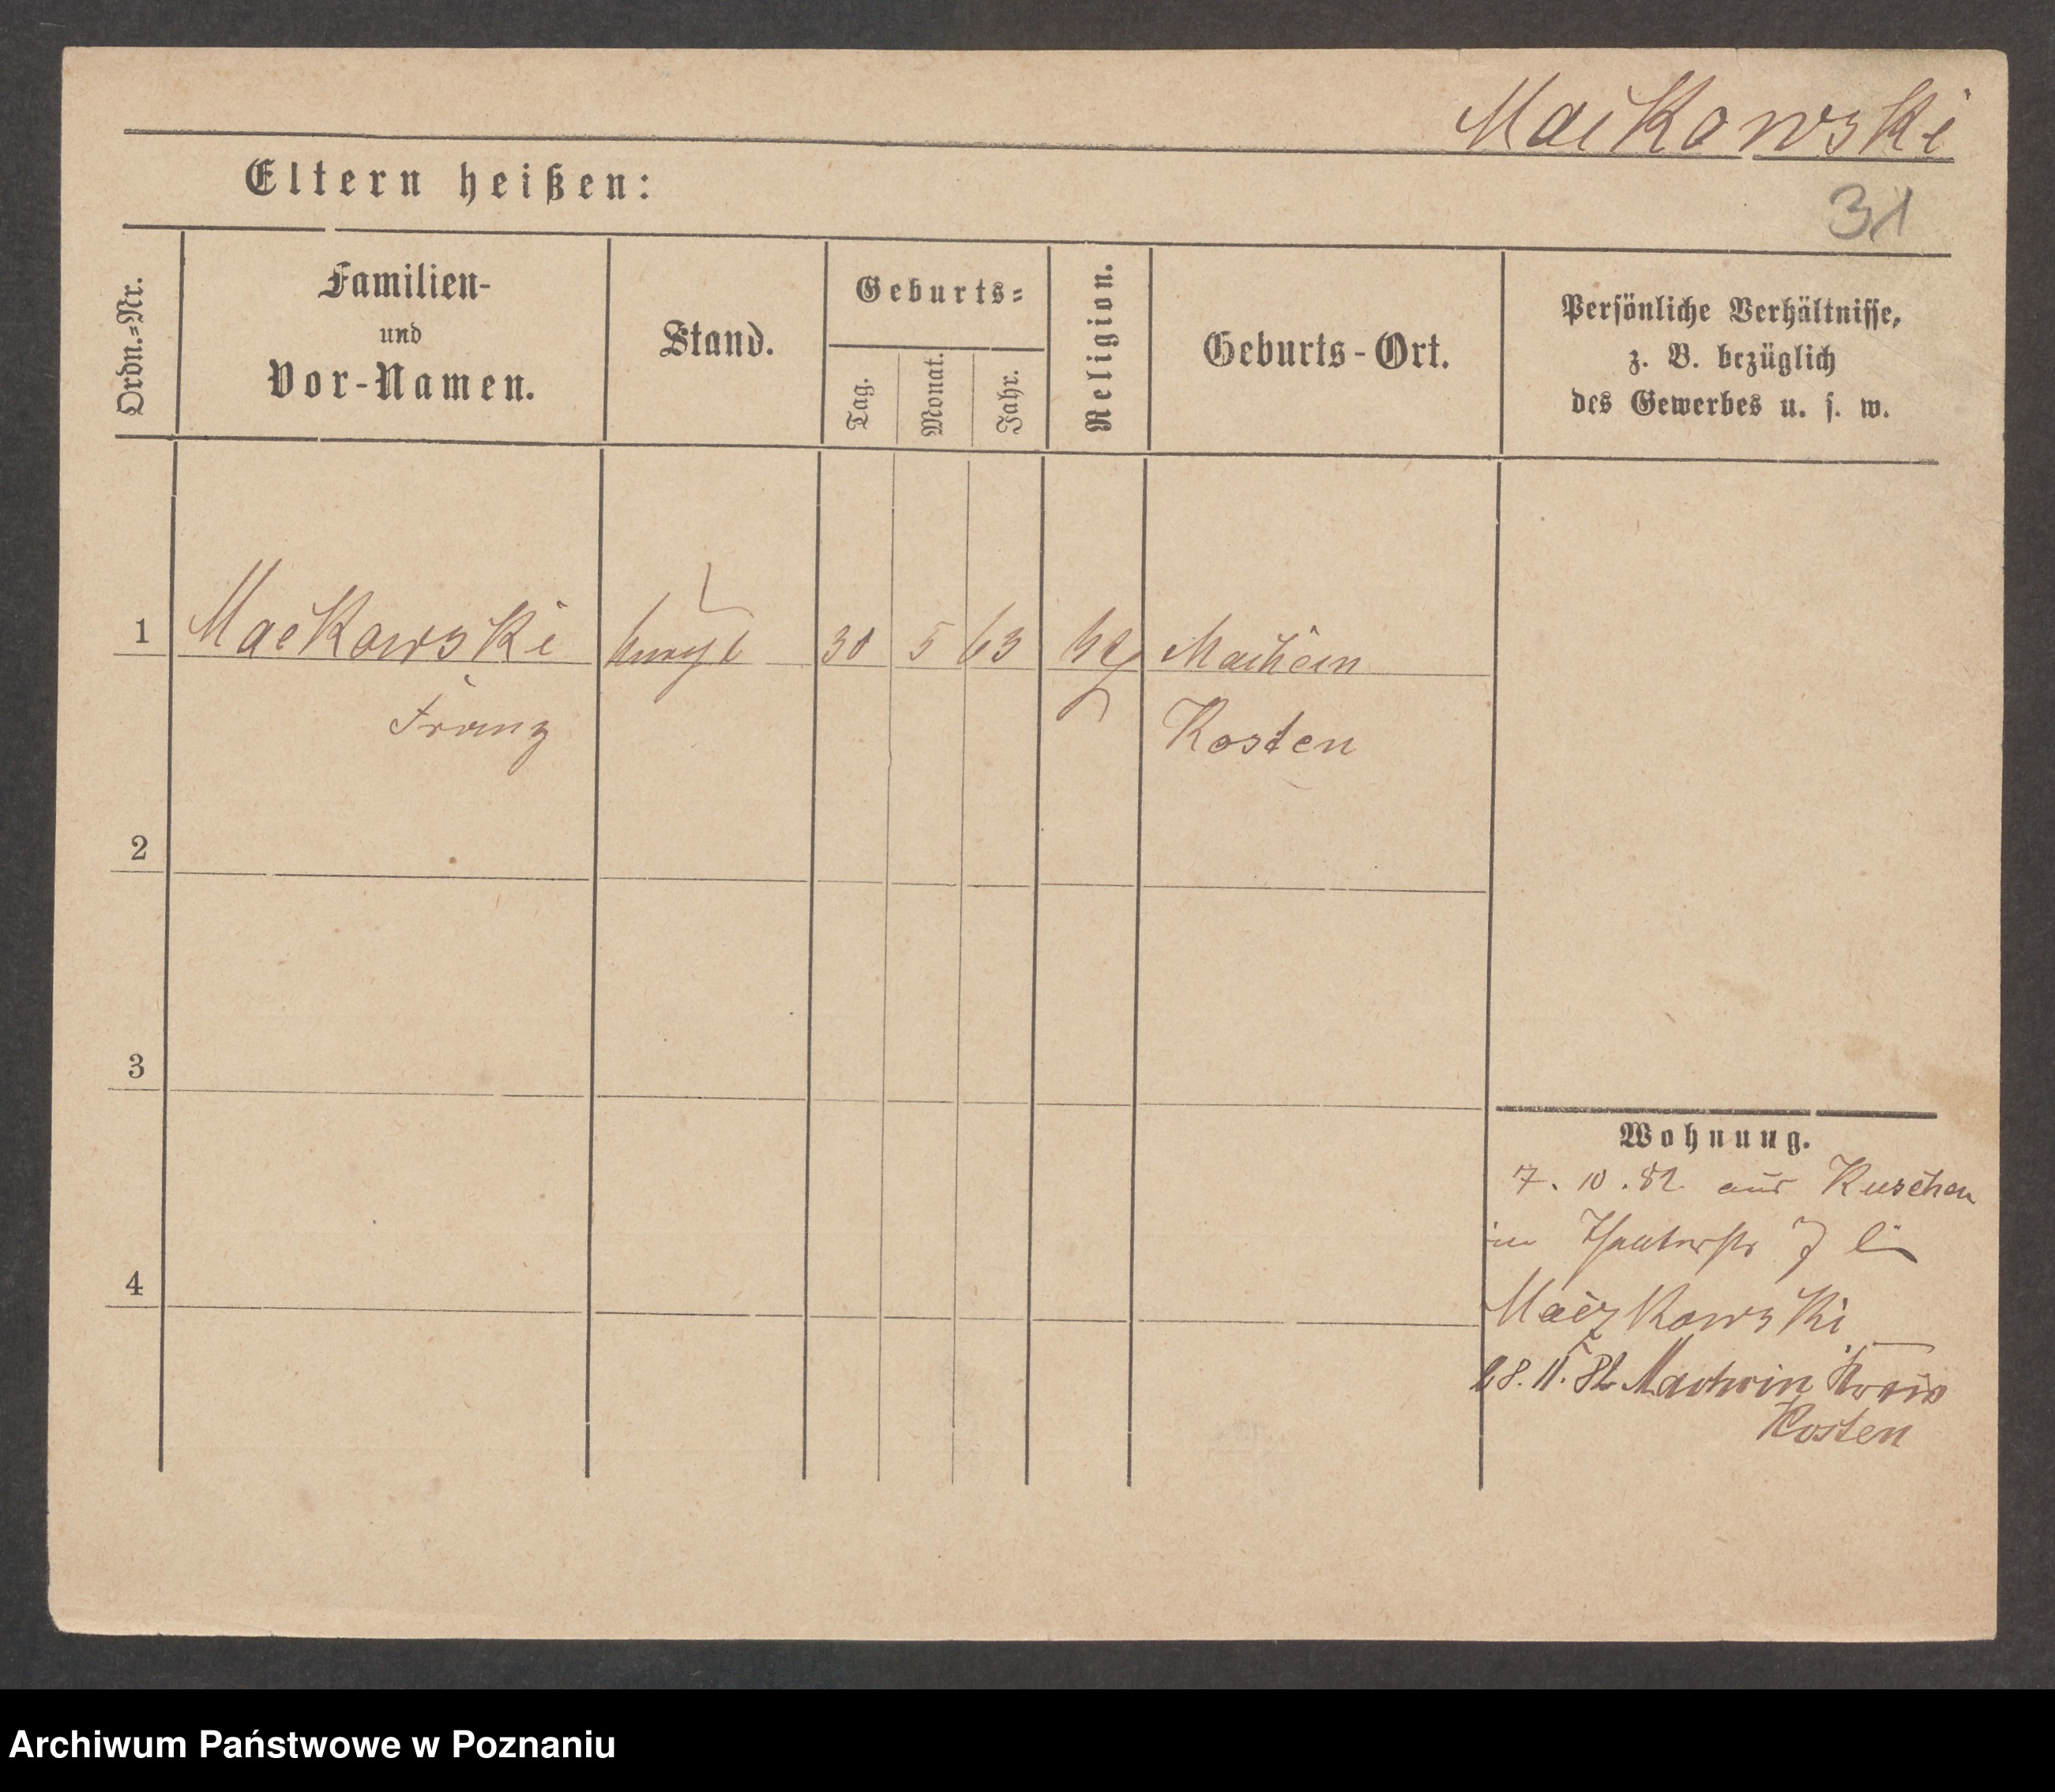 Maćkowski
Eltern heißen:
31
Ordn.=Nr.
Familien-
und
Vor-Namen.
Stand.
Geburts=
Tag.
Monat.
Jahr.
Religion.
Geburts-Ort.
Persönliche Verhältnisse,
z. B. bezüglich
des Gewerbes u. s. w.
1
Maćkowski
30 5 63
Franz
Kosten
2
3
Wohnung.
7. 10. 82 aus Kuschen
in 7
4
Maćzkowski
28. 11. 82 Kreis
Kosten
Archiwum Państwowe w Poznaniu